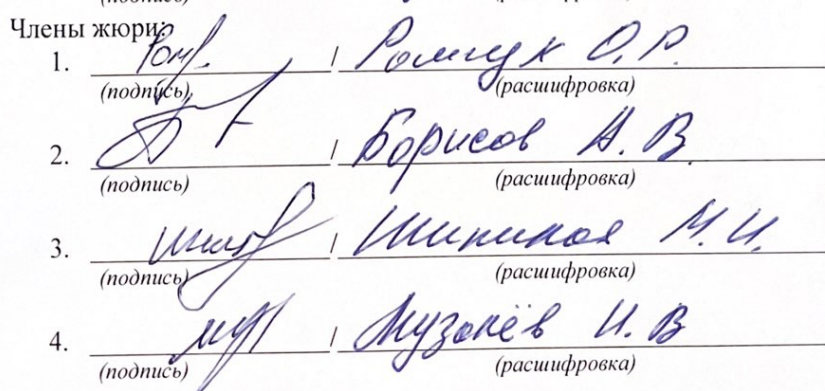 Члены жюри:
1. Ром. / Ромчук О. Р.
(подпись) (расшифровка)
2. / Борисов А. В.
(подпись) (расшифровка)
3. / М. И.
(подпись) (расшифровка)
4. / И. В
(подпись) (расшифровка)